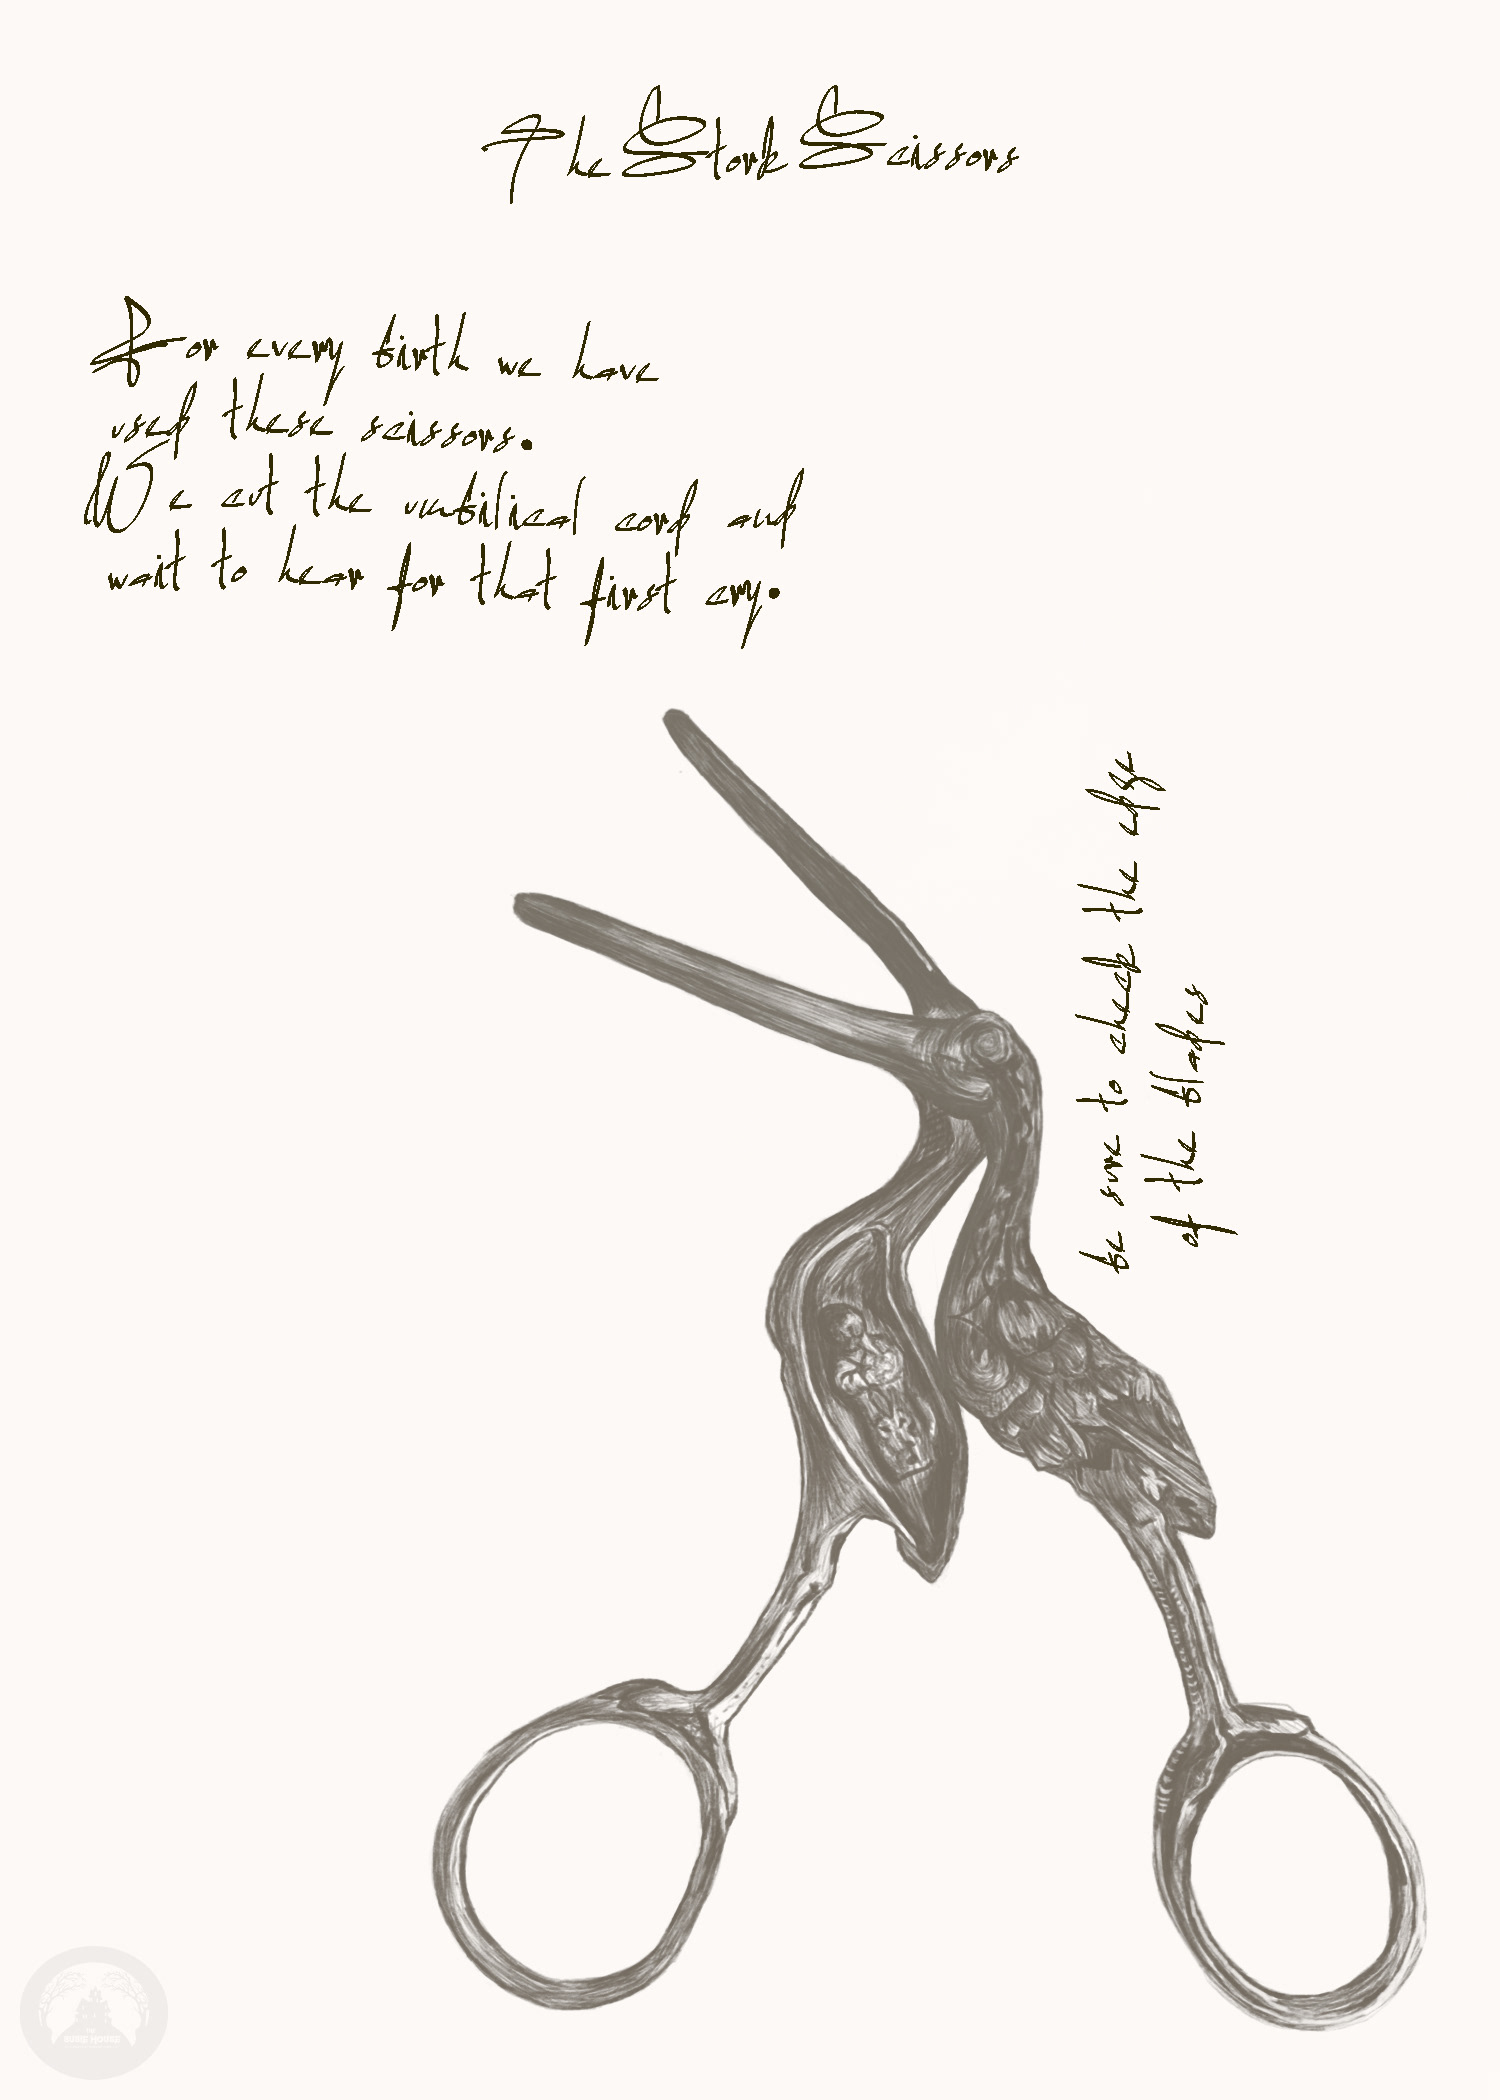 The Stork Scissors
For every birth we have
used these scissors.
We cut the umbilical cord and
wait to hear for that first cry.
be sure to check the edge
of the blades